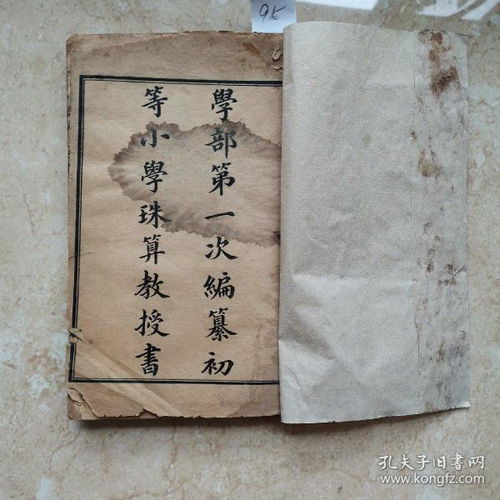 95
學部第一次編纂初
等小學珠算教授書
孔夫子旧书网
www.kongfz.com